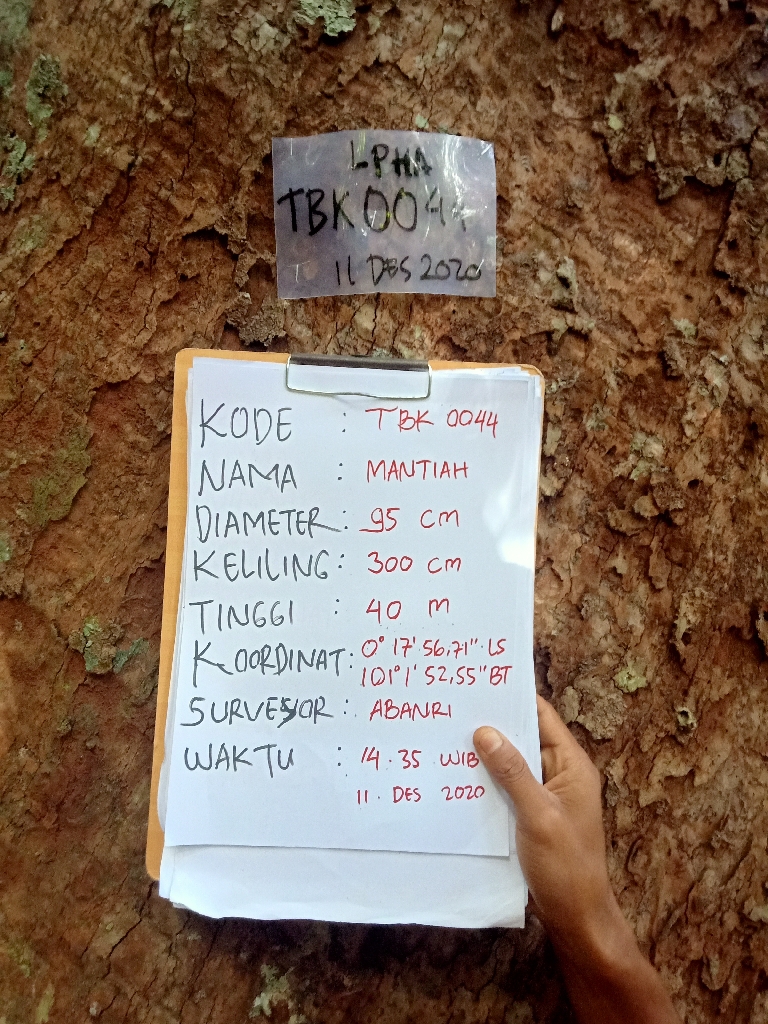 LPHA
TBK 0044
11 DES 2020
KODE : TBK 0044
NAMA : MANTIAH
DIAMETER : 95 cm
KELILING : 300 cm
TINGGI : 40 m
KOORDINAT : 0° 17' 56,71" LS
101° 1' 52,55" BT
SURVEYOR : ABANRI
WAKTU : 14.35 WIB
11. DES 2020